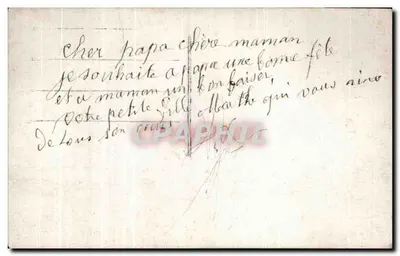 cher papa chère maman
je souhaite a papa une bonne fête
et a maman un bon baiser
votre petite fille Marthe qui vous aime
de tous son cœur